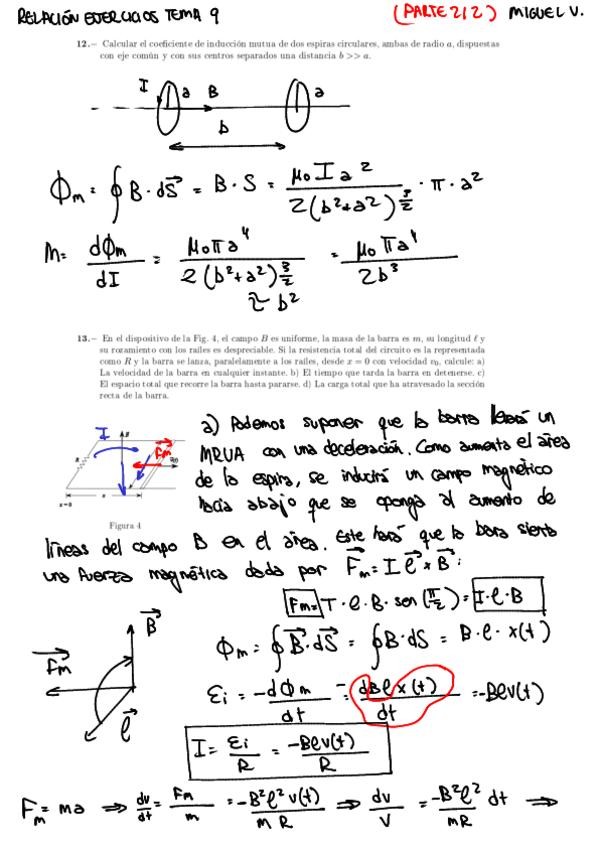 RELACIÓN EJERCICIOS TEMA 9 (PARTE 2/2) MIGUEL V.
12.– Calcular el coeficiente de inducción mutua de dos espiras circulares, ambas de radio a, dispuestas
con eje común y con sus centros separados una distancia b >> a.
I a B a
b
Φm = ∮ B · dS⃗ = B · S = μ0 I a² / 2(b²+a²)^(3/2) · π · a²
M = dΦm/dI = μ0 π a⁴ / 2(b²+a²)^(3/2) = μ0 π a⁴ / 2b³
≈ b²
13.– En el dispositivo de la Fig. 4, el campo B es uniforme, la masa de la barra es m, su longitud ℓ y
su rozamiento con los raíles es despreciable. Si la resistencia total del circuito es la representada
como R y la barra se lanza, paralelamente a los raíles, desde x = 0 con velocidad v0, calcule: a)
La velocidad de la barra en cualquier instante. b) El tiempo que tarda la barra en detenerse. c)
El espacio total que recorre la barra hasta pararse. d) La carga total que ha atravesado la sección
recta de la barra.
I B Fm
R v0
x=0 x
Figura 4
a) Podemos suponer que la barra hará un
MRUA con una deceleración. Como aumenta el área
de la espira, se inducirá un campo magnético
hacia abajo que se oponga al aumento de
líneas del campo B en el área. Este hará que la barra sienta
una fuerza magnética dada por F⃗m = I ℓ⃗ × B⃗ :
Fm = I · ℓ · B · sen(π/2) = I · ℓ · B
B⃗
F⃗m
ℓ⃗
Φm = ∮ B⃗ · dS⃗ = ∮ B · dS = B · ℓ · x(t)
εi = -dΦm/dt = dBℓx(t)/dt = -Bℓv(t)
I = εi/R = -Bℓv(t)/R
Fm = ma ⇒ dv/dt = Fm/m = -B²ℓ²v(t)/mR ⇒ dv/v = -B²ℓ²/mR dt ⇒